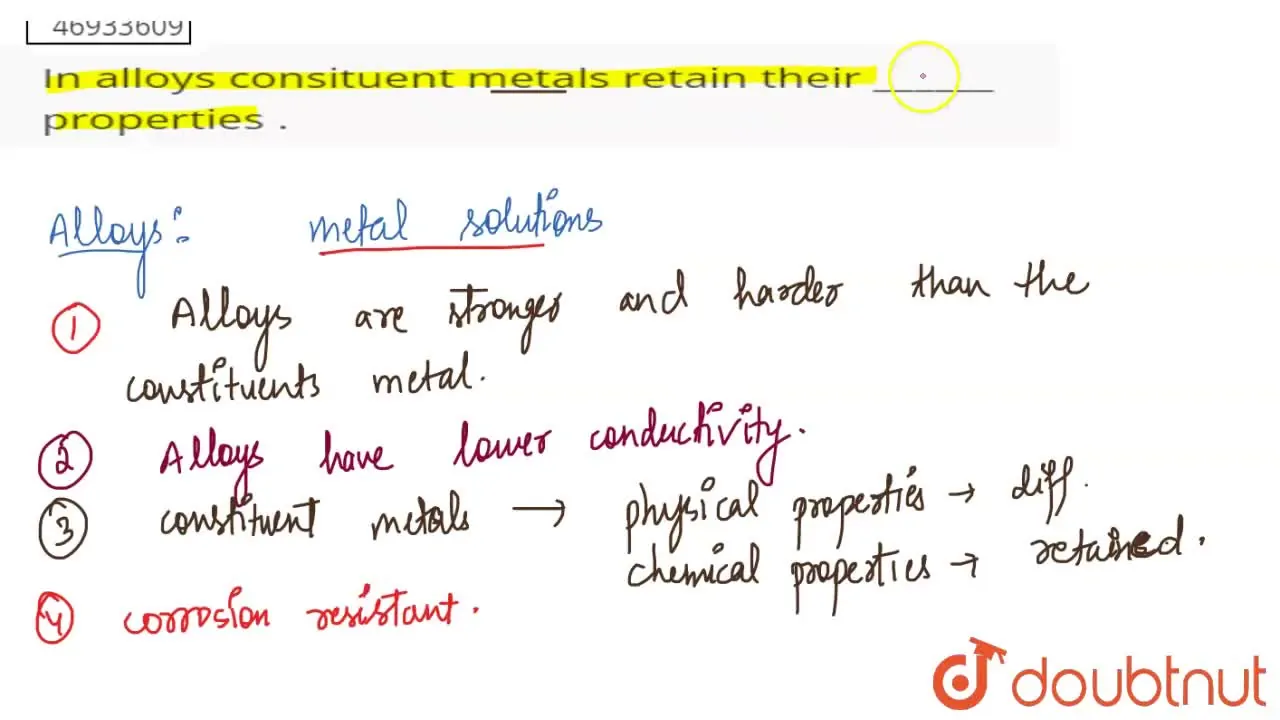 46933609
In alloys consituent metals retain their ______
properties .
Alloys: metal solutions
① Alloys are stronger and harder than the
constituents metal.
② Alloys have lower conductivity.
③ constituent metals → physical properties → diff.
chemical properties → retained.
④ corrosion resistant.
doubtnut